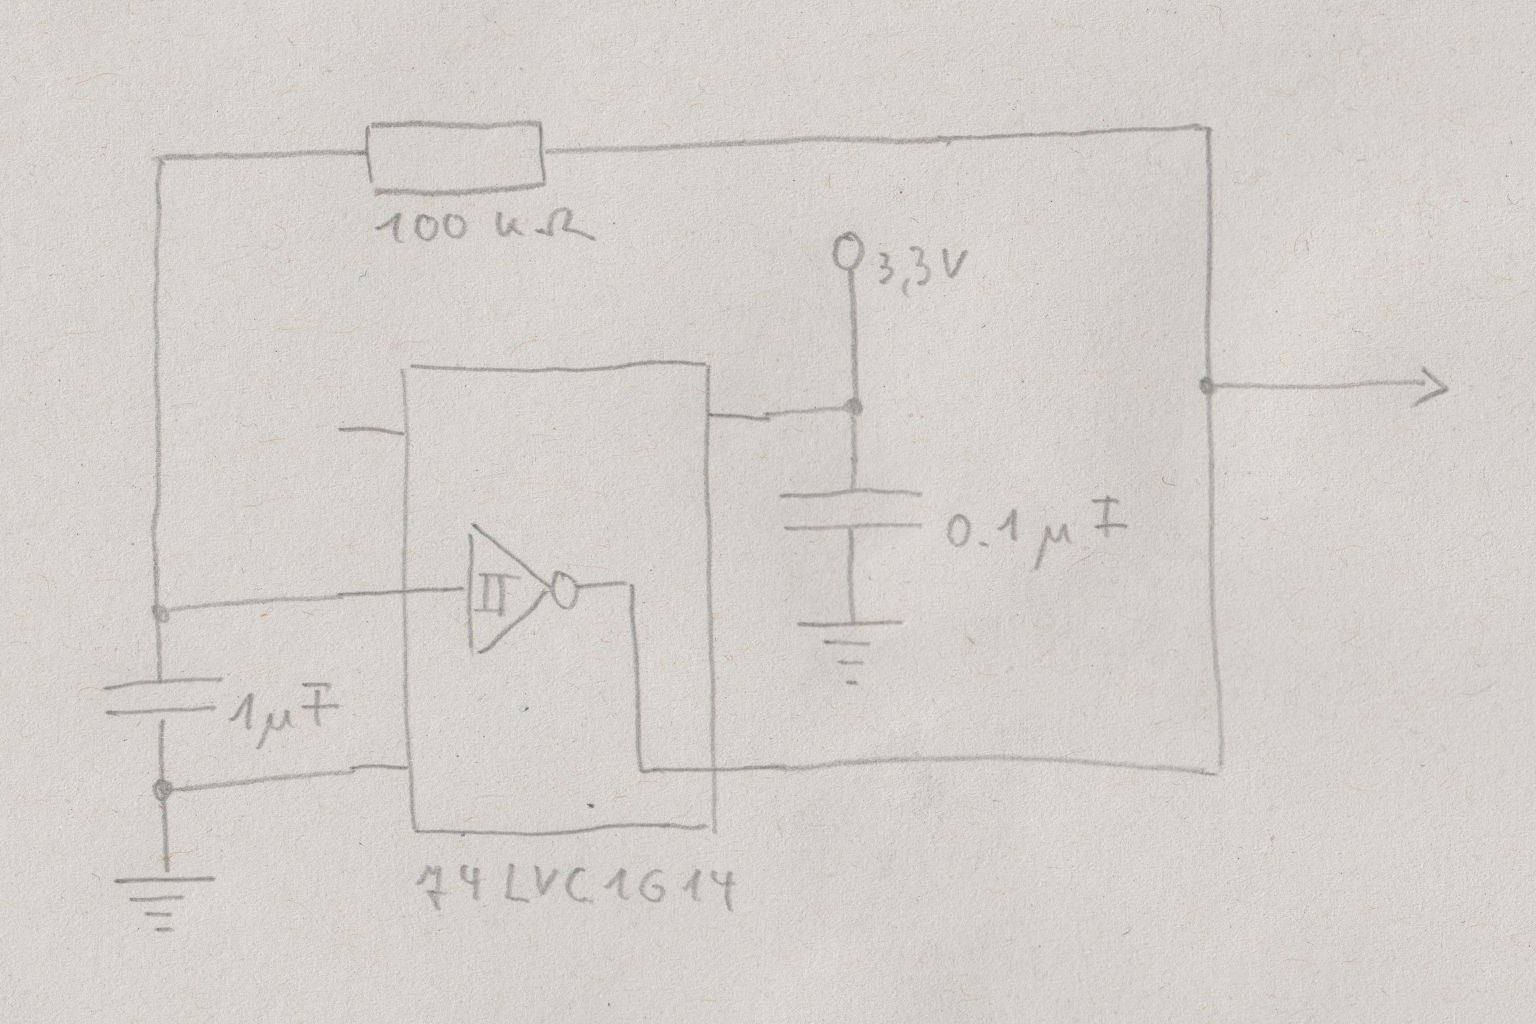 100 kΩ
3,3V
0.1 μF
1μF
74LVC1G14